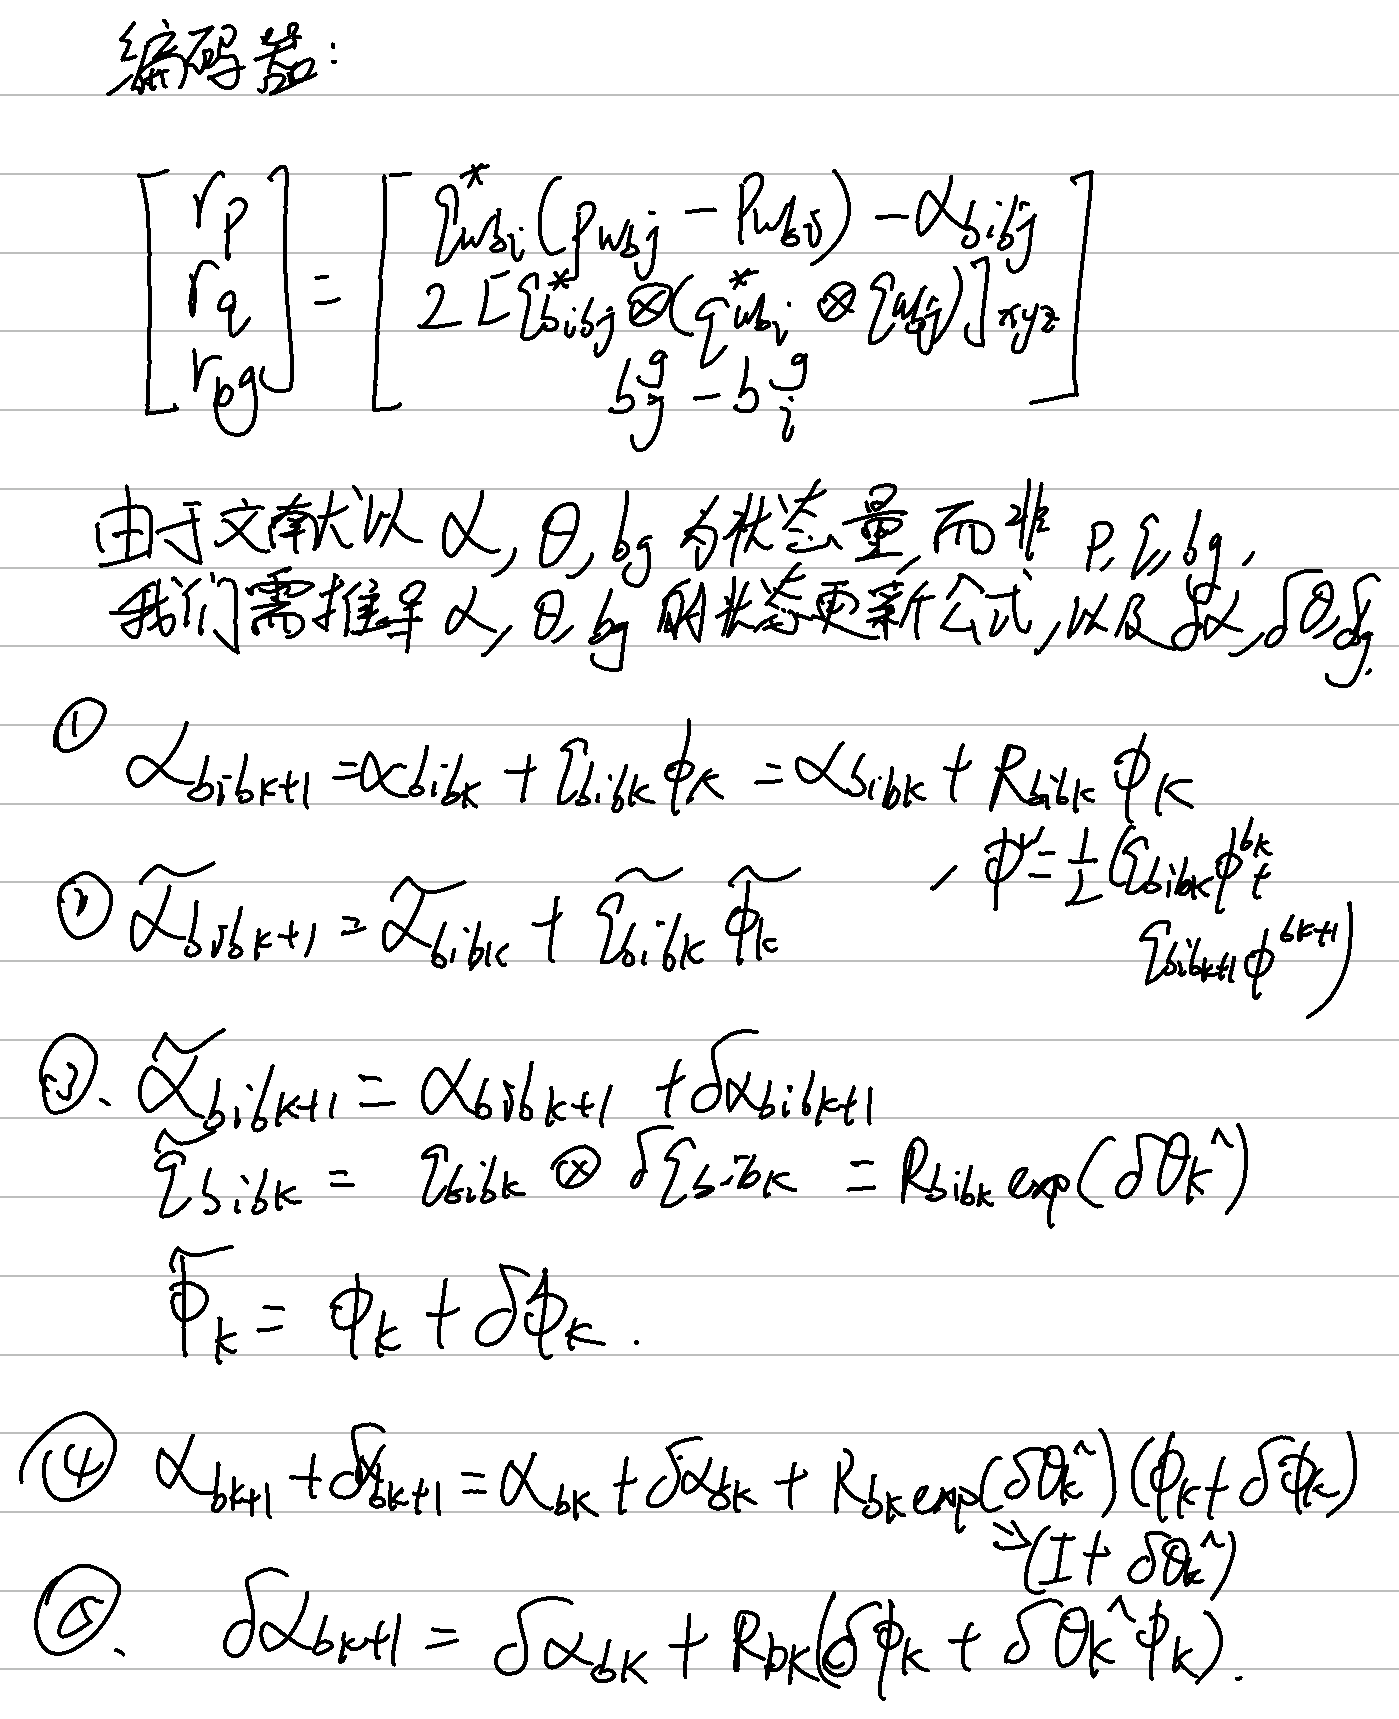 编码器:
[r_p r_q r_bg] = [q*_wbi(p_wbj - p_wbi) - α_bibj
2[q*_bibj ⊗ (q*_wbi ⊗ q_wbj)]_xyz
b^g_j - b^g_i]
由于文献以 α, θ, bg 为状态量,而非 p, q, bg,
我们需推导 α, θ, bg 的状态更新公式,以及 δα, δθ, δg.
① α_bibk+1 = α_bibk + q_bibk φ_k = α_bibk + R_bibk φ_k
, φ = 1/2 (q_bibk φ^bk +
② α̃_bibk+1 = α̃_bibk + q̃_bibk φ̃_k
q_bibk+1 φ^bk+1)
③. α̃_bibk+1 = α_bibk+1 + δα_bibk+1
q̃_bibk = q_bibk ⊗ δq_bibk = R_bibk exp(δθ_k^)
φ̃_k = φ_k + δφ_k.
④ α_bk+1 + δα_bk+1 = α_bk + δα_bk + R_bk exp(δθ_k^)(φ_k + δφ_k)
⇒ (I + δθ_k^)
⑤. δα_bk+1 = δα_bk + R_bk(δφ_k + δθ_k^ φ_k).